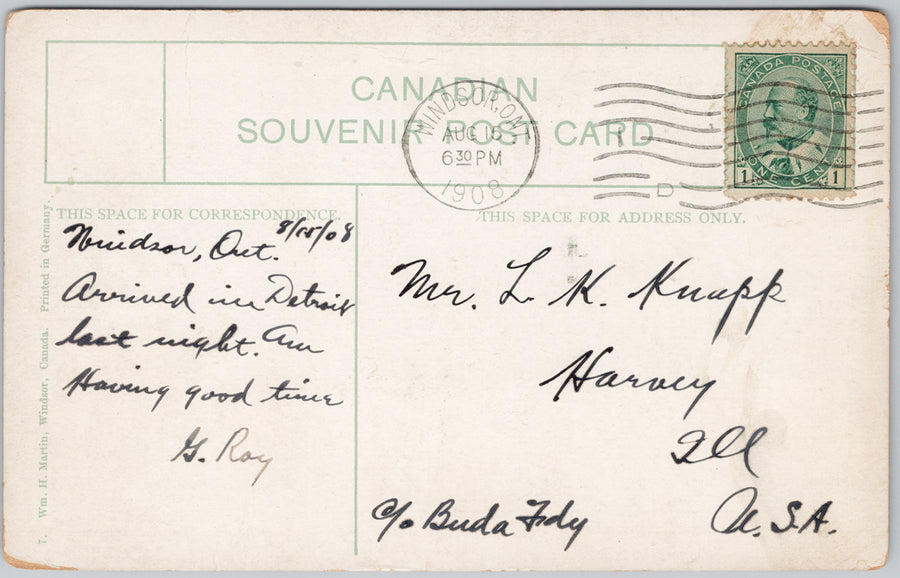 CANADIAN
SOUVENIR POST CARD
WINDSOR, ONT.
AUG 16
6 30 PM
1908
D
CANADA POSTAGE
1 ONE CENT 1
THIS SPACE FOR CORRESPONDENCE.
THIS SPACE FOR ADDRESS ONLY.
Windsor, Ont. 8/15/08
Arrived in Detroit
last night. Am
Having good time
G. Roy
Mr. L. K. Knapp
Harvey
Ill
c/o Buda Fdy U.S.A.
7. Wm. H. Martin, Windsor, Canada. Printed in Germany.